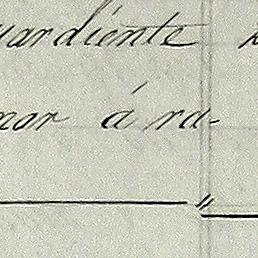 uardiente
mar á ra-
"